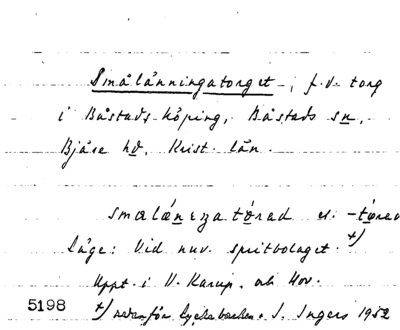 Smålänningatorget, f.d. torg
i Båstads köping, Båstads sn,
Bjäre hd, Krist. län.
smålánıŋatǿrad el. -tǿrad
Läge: Vid nuv. spritbolaget. +)
Uppt. i V. Karup, och Hov.
5198 +) nedanför Lyckabacken. I. Ingers 1952